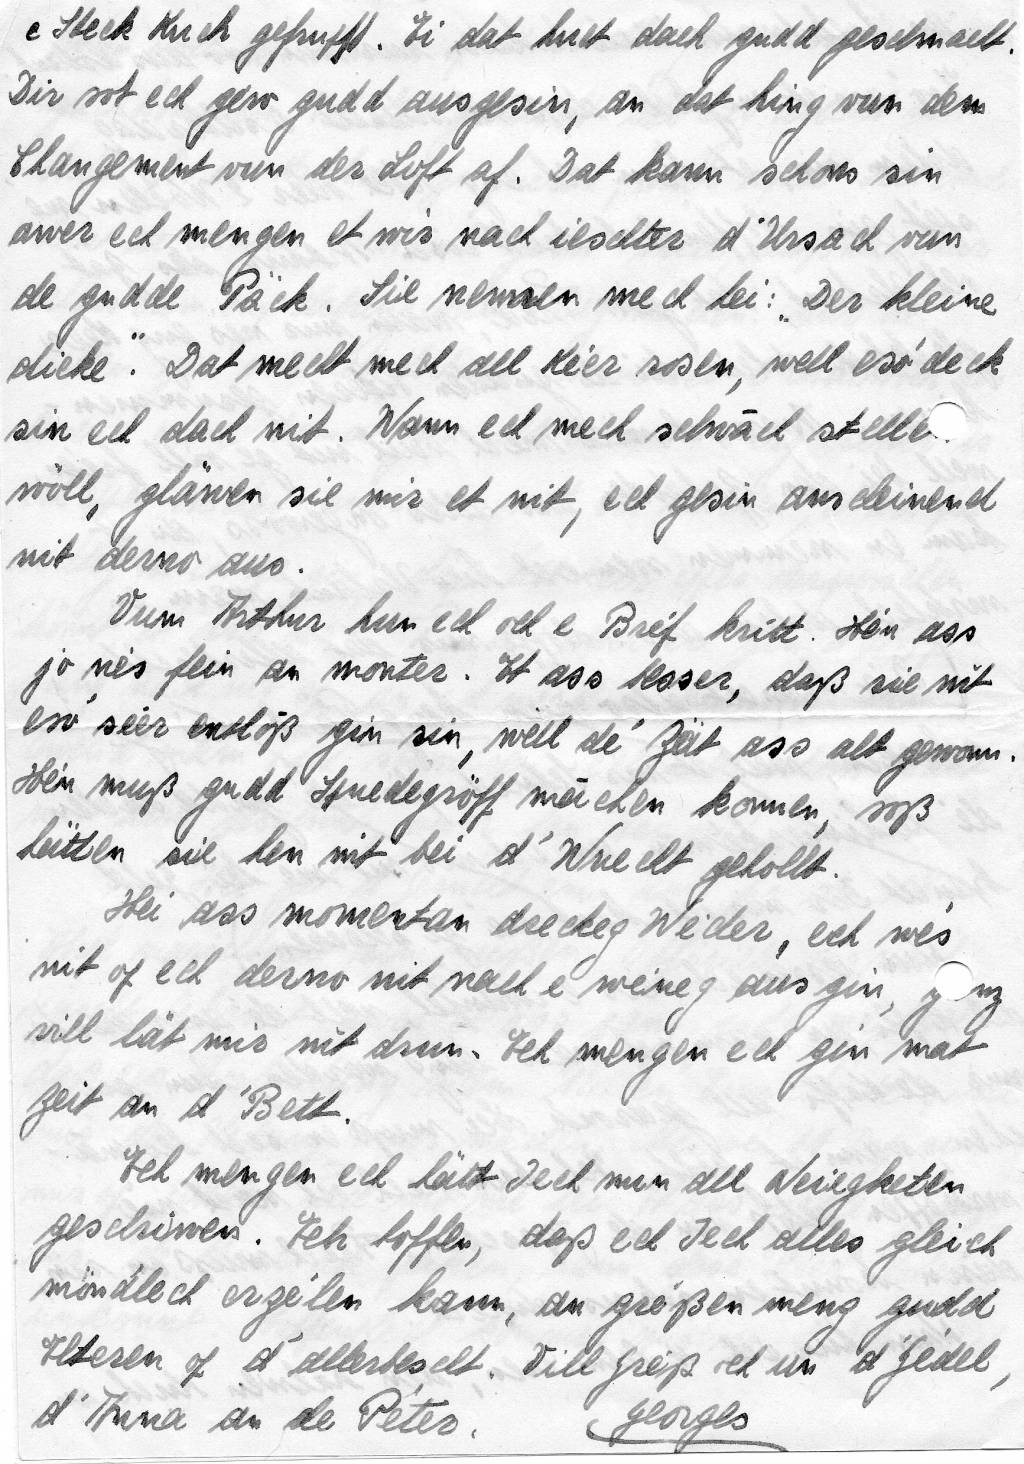 e Steck Kuch gefrufft. Ei dat huet dach gudd geschmaelt.
Dir sot ech gew gudd ausgesin, an dat hing vun dem
Changement vun der Loft af. Dat kann schons sin
awer ech mengen et wir nach ieschter d'Ursach vun
de gudde Päck. Sie nennen mech hei: „Der kleine
dicke". Dat mecht mech all Kéier rosen, well esó deck
sin ech dach nit. Wann ech mech schwäch stelle
wöll, gläwen sie mir et nit, ech gesin anscheinend
nit derno aus.
Vum Arthur hun ech och e Bréf kritt. Hén ass
jo nés fein an monter. Et ass besser, daß sie nit
esó séier entlöß gin sin, well dé Zeit ass alt gewonn.
Hén muß gudd Handegröff mächen konnen, soß
hätten sie hen nit bei d'Wuecht gehollt.
Hei ass momentan dreckeg Wéder, ech wés
nit of ech derno nit nach e wéineg aus gin, ganz
vill lät mir nit drun. Ech mengen ech gin mat
Zeit an d'Bett.
Ech mengen ech hätt Iech nun all Neiegketen
geschriwen. Ech hoffen, daß ech Iech alles gleich
möndlech erzélen kann, an gréßen meng gudd
Elteren of d'allerbescht. Vill Gréß och un d'Gédel,
d'Anna an de Péter.
Georges